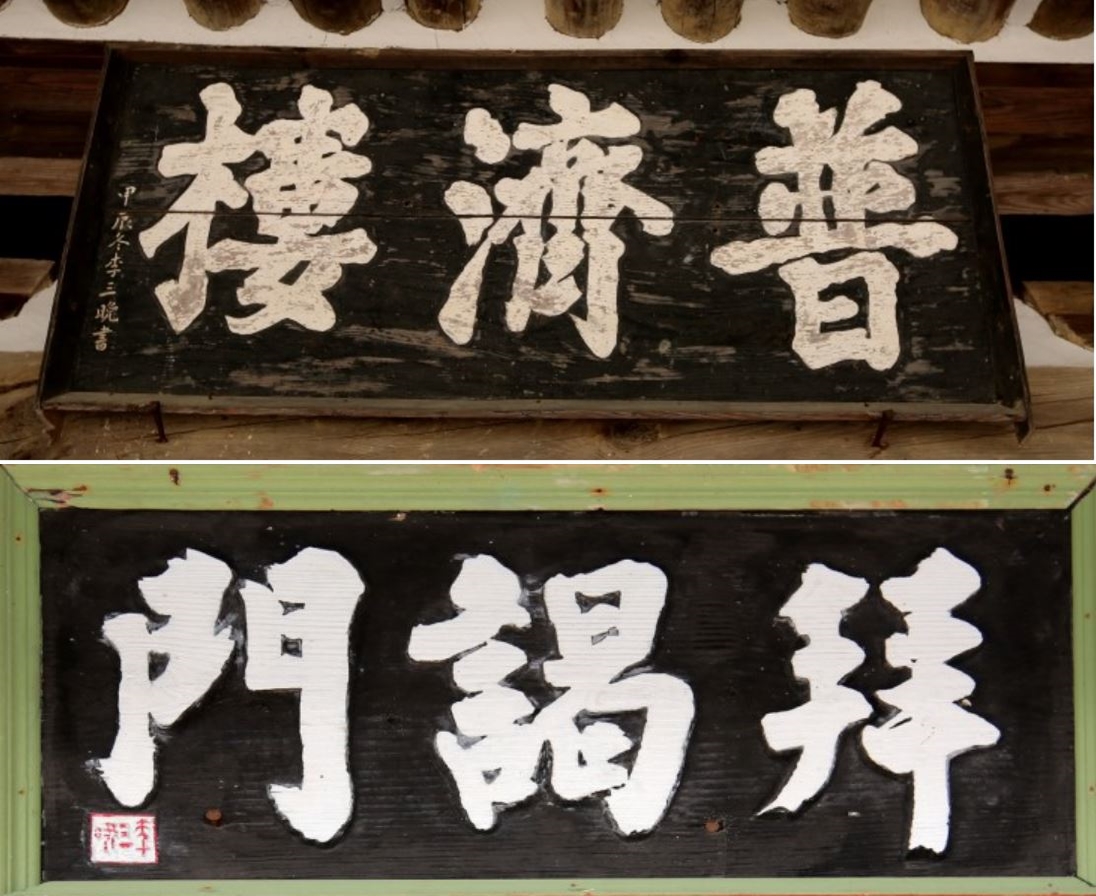 普濟樓
甲辰冬李三晩書
拜謁門
李三晩